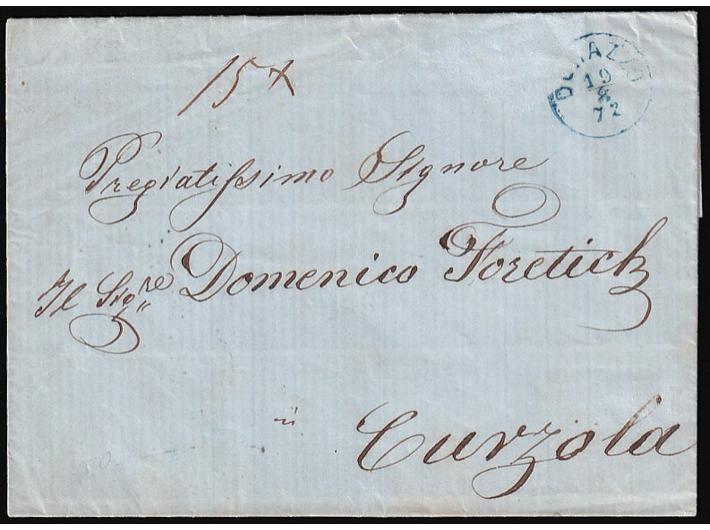 15x
DURAZZO
19
6
72
Pregiatissimo Signore
Il Sig.re Domenico Foretich
Curzola